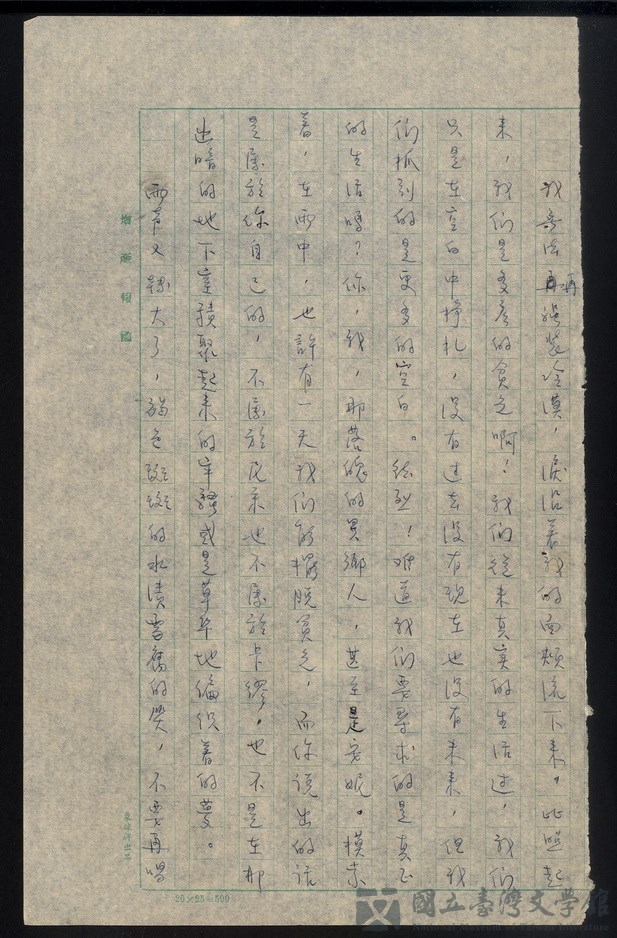 我無法再偽裝冷漠，淚沿著我的面頰流下來，比照起
來，我們是多麼的貧乏啊！我們從未真實的生活過，我們
只是在空白中掙扎，沒有過去沒有現在也沒有未來，但我
們抓到的是更多的空白。 ！難道我們要尋求的是真正
的生活嗎？你，我，那落魄的異鄉人，甚至是安妮。摸索
著，在雨中，也許有一天我們能擺脫貧乏，而你說出的話
是屬於你自己的，不屬於尼采也不屬於卡繆，也不是在那
幽暗的地下室積聚起來的牢騷或是草草地編織著的夢。
雨聲又驟大了，褐色斑斑的水漬 舊的哭，不要再唱
20×25=500
國立臺灣文學館
National Museum of Taiwan Literature